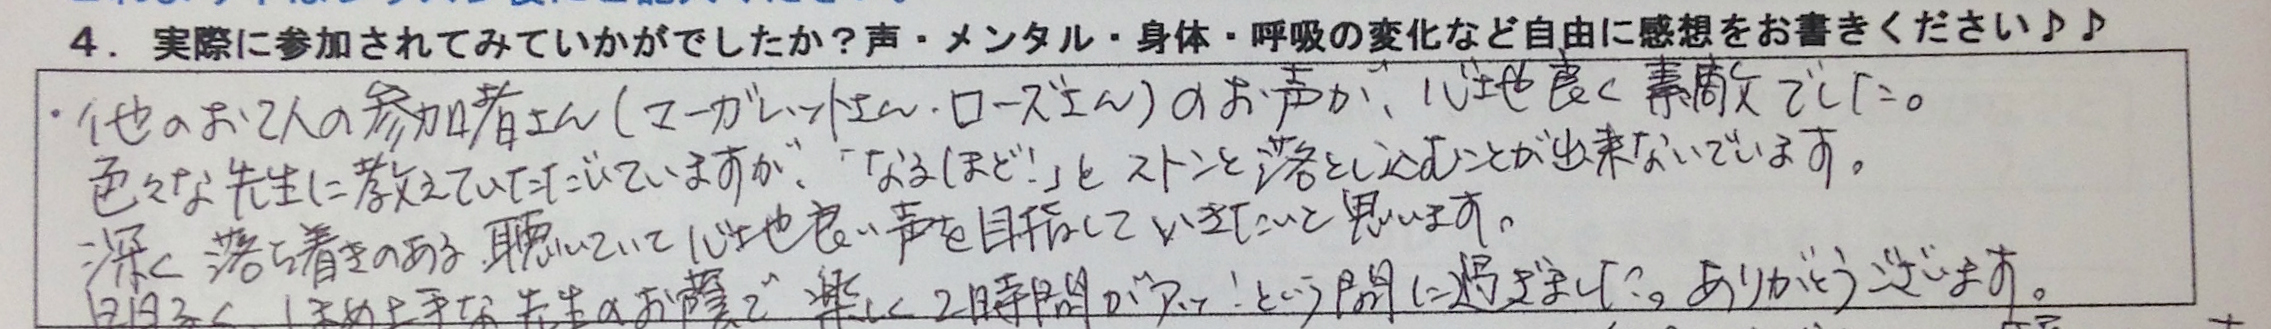 4. 実際に参加されてみていかがでしたか？声・メンタル・身体・呼吸の変化など自由に感想をお書きください♪♪
・他のお2人の参加者さん(マーガレットさん・ローズさん)のお声が、心地良く素敵でした。
色々な先生に教えていただいていますが、「なるほど！」とストンと落とし込むことが出来ないでいます。
深く落ち着きのある、聴いていて心地良い声を目指していきたいと思います。
明るく、ほめ上手な先生のお蔭で楽しく2時間がアッ！という間に過ぎました。ありがとうございます。